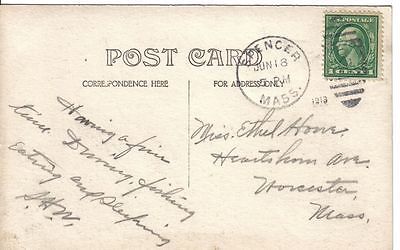 POST CARD
CORRESPONDENCE HERE
FOR ADDRESS ONLY
SPENCER
JUN 18
5 PM
MASS.
1913
1 CENT 1
Having a fine
time. Driving, fishing
eating and sleeping
S.H.W.
Miss Ethel Howe
Heartshorn Ave.
Worcester
Mass.